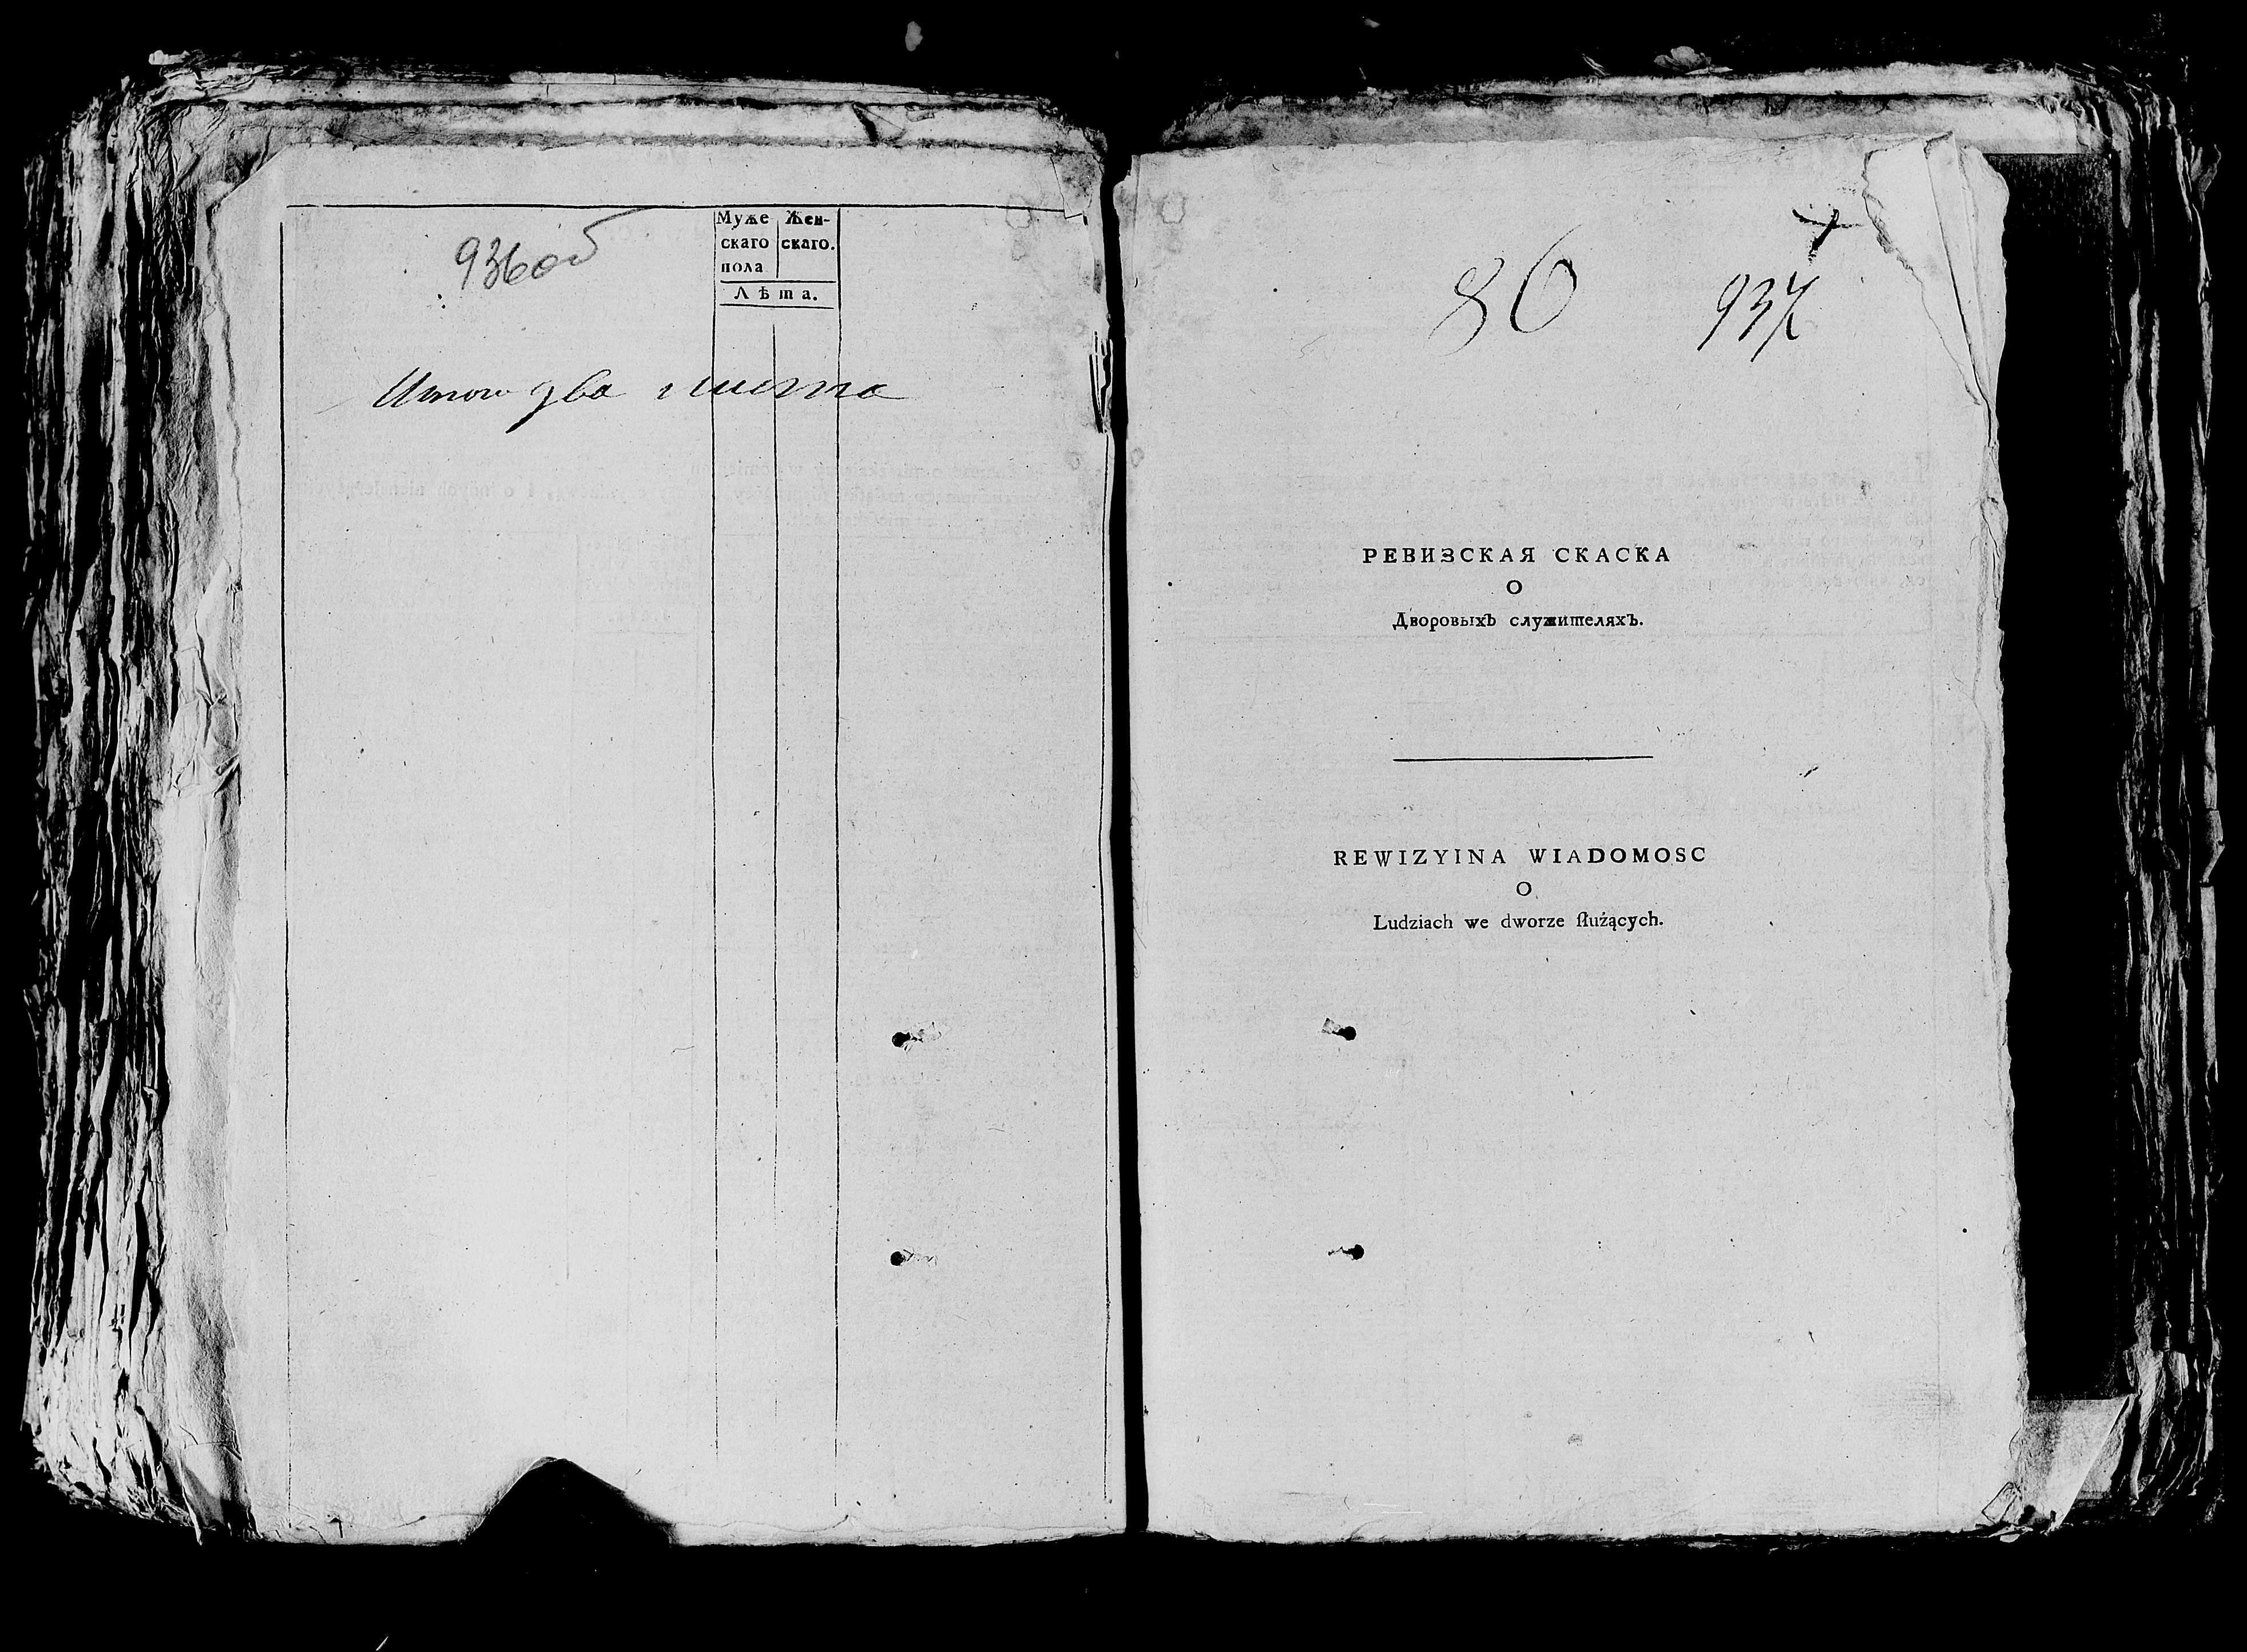 936об
Муже Жен-
скаго скаго.
пола
Лѣта.
Итого два листа
86 937
РЕВИЗСКАЯ СКАСКА
О
Дворовыхъ служителяхъ.
REWIZYINA WIADOMOSC
O
Ludziach we dworze ſłużących.